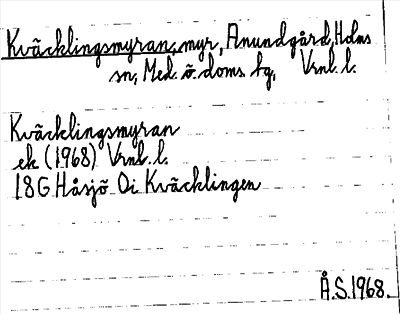 Kväcklingsmyran, myr, Anundgård, Holms
sn, Med. ö. doms. hg, Vrnl. l.
Kväcklingsmyran
ek (1968) Vrnl. l.
18G Håsjö Oi Kväcklingen
Å.S. 1968.